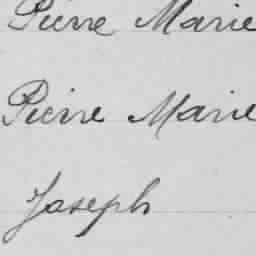 Pierre Marie
Pierre Marie
Joseph